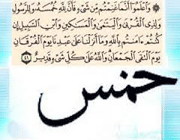 وَاعْلَمُوا أَنَّمَا غَنِمْتُم مِّن شَيْءٍ فَأَنَّ لِلَّهِ خُمُسَهُ وَلِلرَّسُولِ
وَلِذِي الْقُرْبَىٰ وَالْيَتَامَىٰ وَالْمَسَاكِينِ وَابْنِ السَّبِيلِ إِن
كُنتُمْ آمَنتُم بِاللَّهِ وَمَا أَنزَلْنَا عَلَىٰ عَبْدِنَا يَوْمَ الْفُرْقَانِ
يَوْمَ الْتَقَى الْجَمْعَانِ وَاللَّهُ عَلَىٰ كُلِّ شَيْءٍ قَدِيرٌ ٤١
خمس